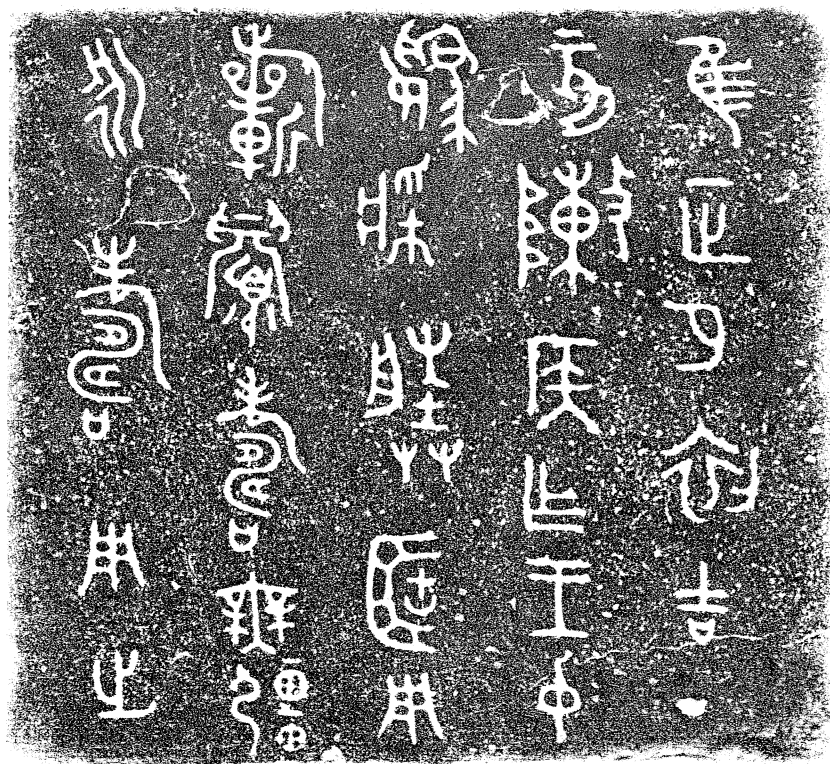 隹正月初吉丁
亥敶侯乍王中
媯媵用
眉壽無彊
永壽用之